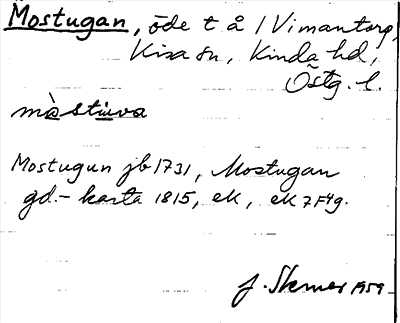 Mostugan, öde t å 1 Vimantorp,
Kisa sn, Kinda hd,
Östg. l.
mòstùva
Mostugun jb 1731, Mostugan
gd.- karta 1815, eK, eK 7F4g.
J. 1959